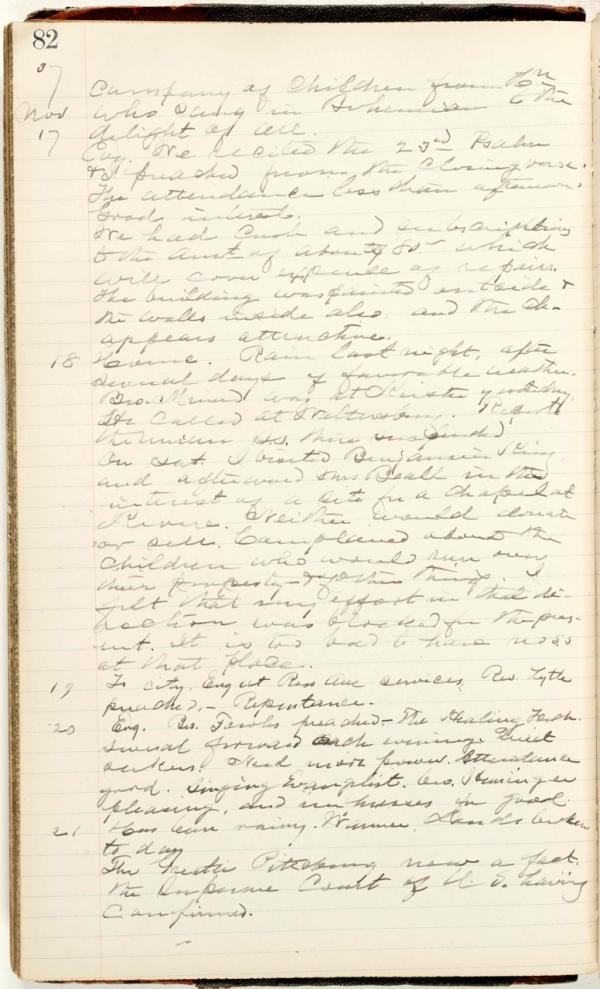 82
07
company of Children from
Nov who sang in Bohemian to the
17 delight of all.
Evg. We recited the 23rd Psalm
& I preached from the closing verse.
The attendance less than afternoon.
Good interest.
We had Cash and subscriptions
to the amt of about 85 which
will cover expense of repairs.
The building was painted outside &
the walls inside also and the Ch-
appears attractive.
18 Home. Rain last night, after
several days of favorable weather.
Bro. was at yesterday
He called at Reports
the union S.S. there suspended.
On Sat. I visited Benjamin King
and afterward Mrs Beall in the
interest of a site for a Chapel at
Neither would donate
or sell. Complained about the
Children who would run over
their property & other things. I
felt that my effort in that di-
rection was blocked for the pres-
ent. It is too bad to have no S.S.
at that place.
19 To city. Evg at Ross Ave services. Rev. Lytle
preached, - Repentance.
20 Evg. Bro. Fowks preached - The Healing Touch.
Several forward each evening. Quiet
seekers. Need more power. Attendance
good. Singing Evangelist. Geo.
pleasing, and immense for good.
21 Has been rainy. Warmer.
to day
The Greater Pittsburg now a fact.
The Supreme Court of U. S. having
Confirmed.